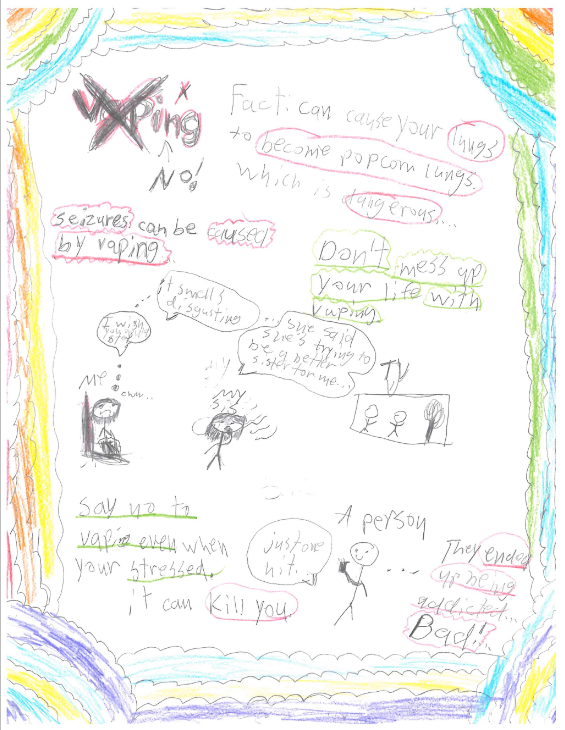 vaping
NO!
Fact: can cause your lungs
to become popcorn lungs
which is dangerous...
seizures can be caused
by vaping
Don't mess up
your life with
vaping
it smells
disgusting
I wish
she said
she's trying to
be a better
sister for me...
me
my
sis
TV
say no to
vaping even when
your stressed.
it can kill you
just one
hit.
A person
They ended
up being
addicted...
Bad!!